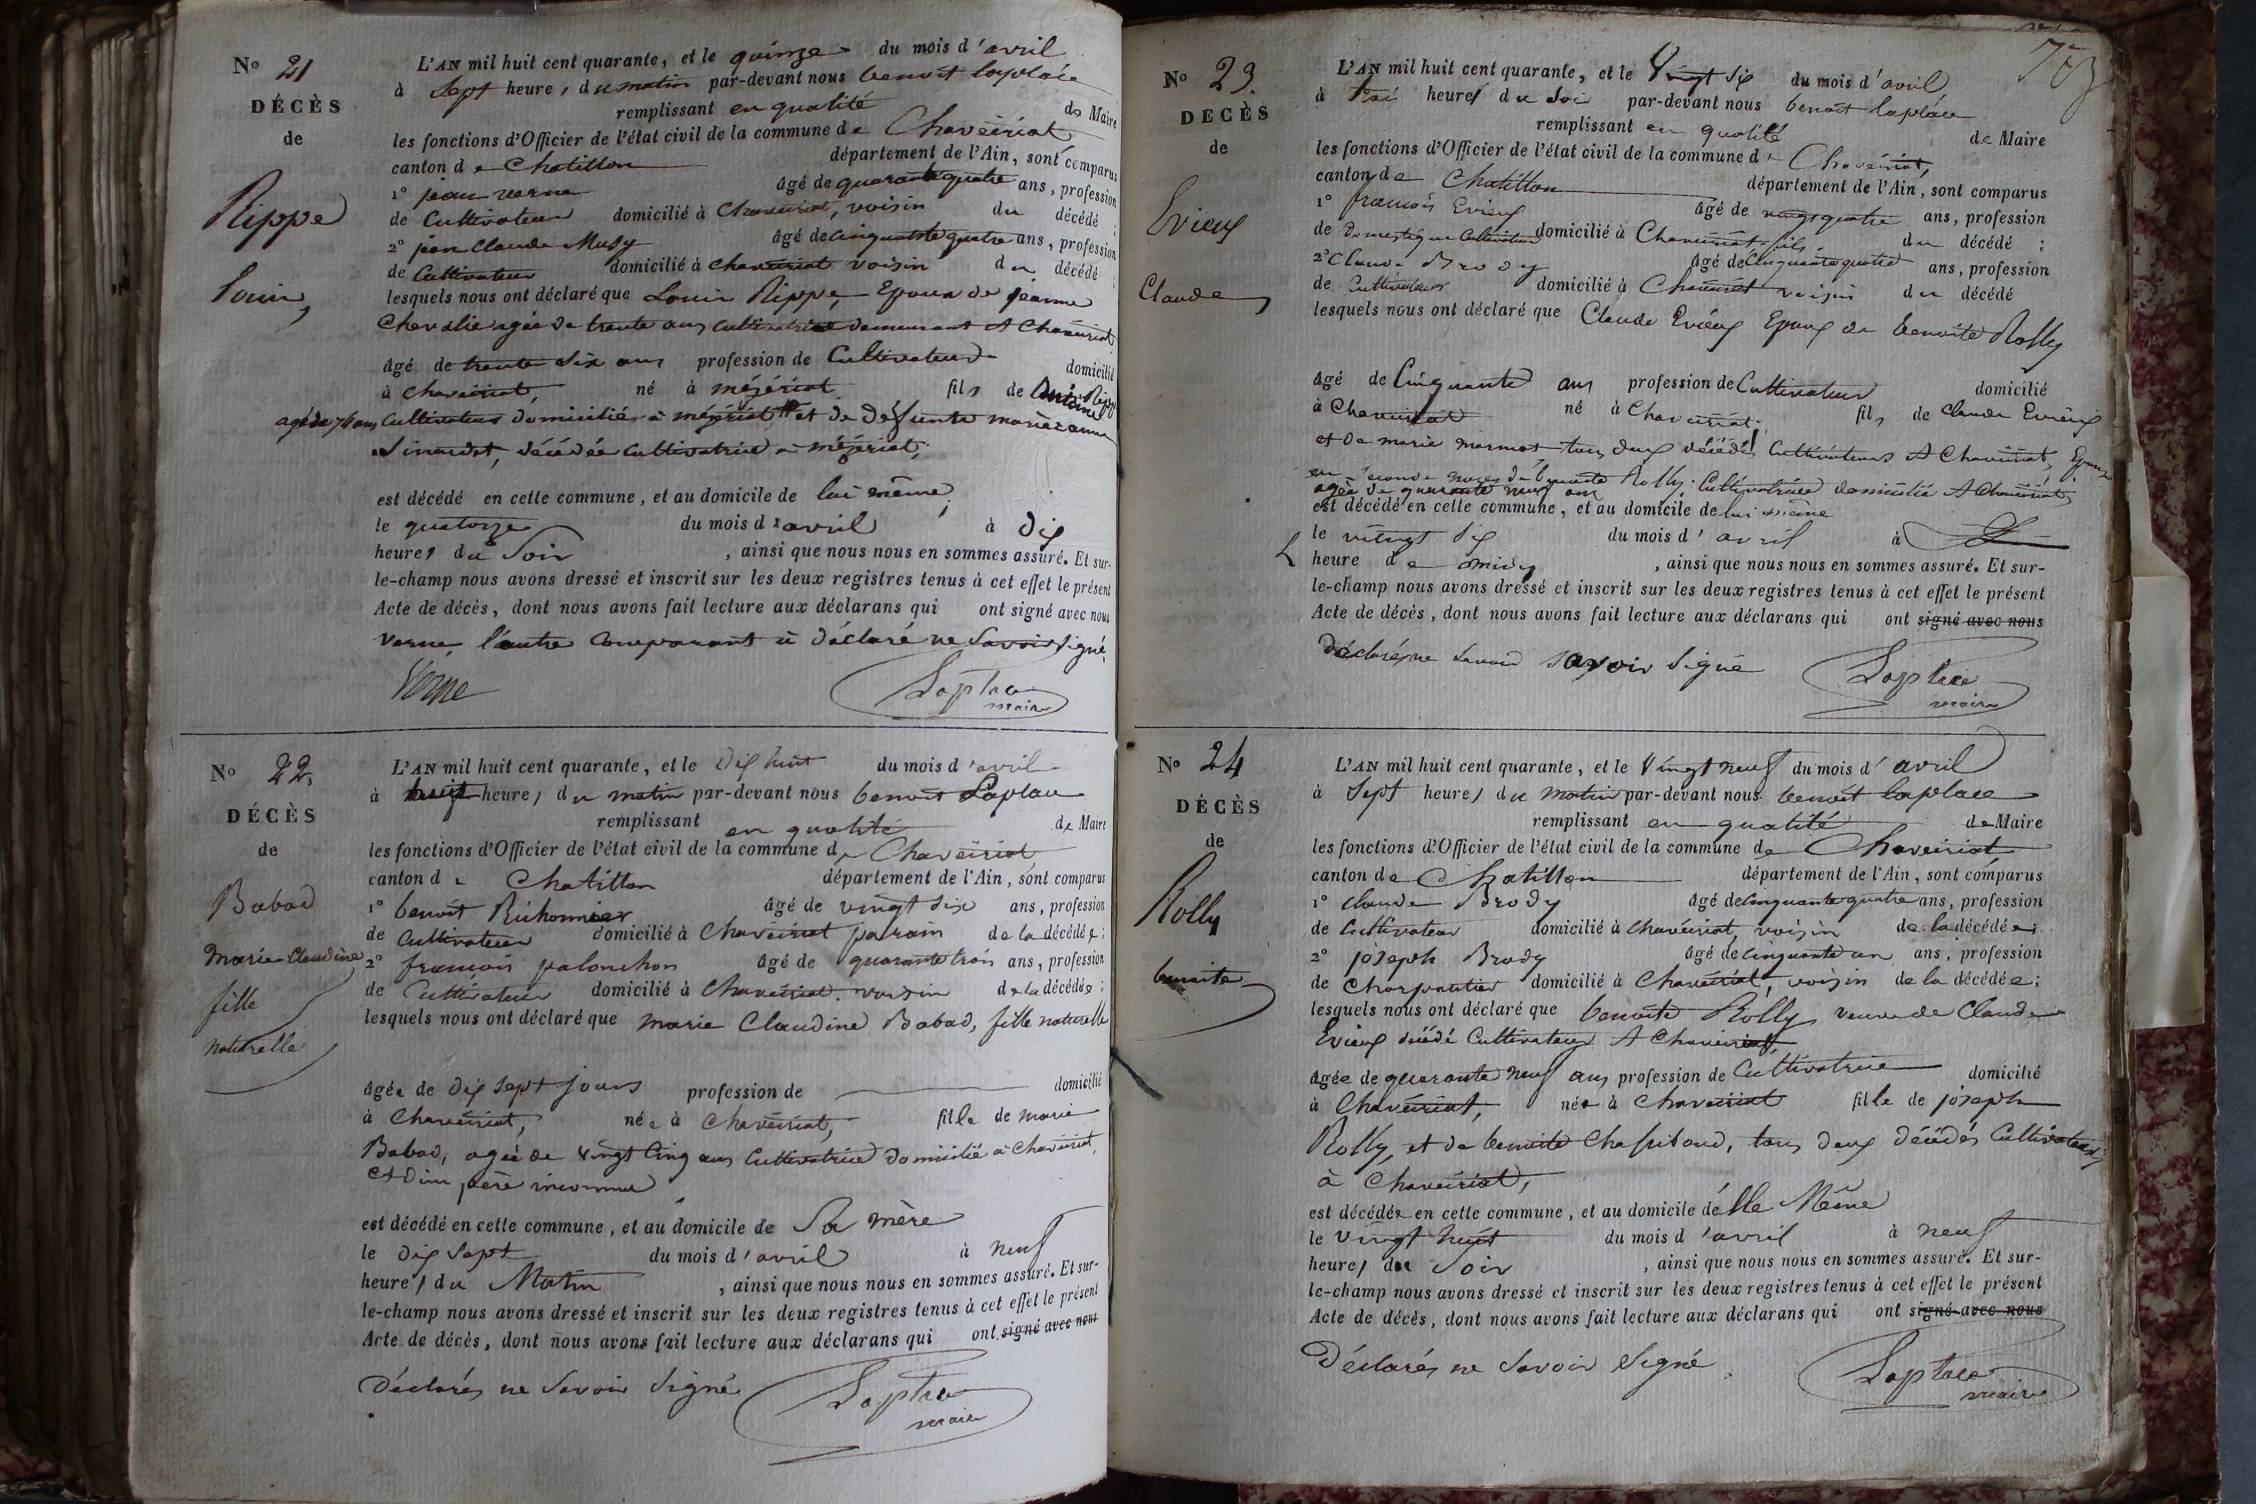 N° 21
DÉCÈS
de
Rippe
Louis,
L'AN mil huit cent quarante, et le quinze du mois d'avril
à Sept heures du matin par-devant nous benoit laplace
remplissant en qualité de Maire
les fonctions d'Officier de l'état civil de la commune de Chaveiriat
canton de Chatillon département de l'Ain, sont comparus
1° jean verne âgé de quarante quatre ans, profession
de Cultivateur domicilié à Chaveiriat, voisin du décédé ;
2° jean Claude Musy âgé de cinquante quatre ans, profession
de Cultivateur domicilié à chaveiriat voisin du décédé ;
lesquels nous ont déclaré que Louis Rippe, Epoux de jeanne
Chevalie agée de trente ans cultivatrice demeurant A Chaveiriat
âgé de trente six ans profession de Cultivateur domicilié
à chaveiriat, né à mézériat fils de Antoine Rippe
agé de 76 ans Cultivateur domicilié à mézériat et de défunte marie anne
Sinardet, décédée cultivatrice à mézériat,
est décédé en cette commune, et au domicile de lui même,
le quatorze du mois d'avril à dix
heures du Soir, ainsi que nous nous en sommes assuré. Et sur-
le-champ nous avons dressé et inscrit sur les deux registres tenus à cet effet le présent
Acte de décès, dont nous avons fait lecture aux déclarans qui ont signé avec nous
verne l'autre comparant à déclaré ne Savoir signé,
Verne Laplace
maire
N° 22,
DÉCÈS
de
Babad
marie Claudine
fille
naturelle
L'AN mil huit cent quarante, et le dix huit du mois d'avril
à huit heures du matin par-devant nous benoit Laplace
remplissant en qualité de Maire
les fonctions d'Officier de l'état civil de la commune de Chaveiriat
canton de Chatillon département de l'Ain, sont comparus
1° benoit Richonnier âgé de vingt six ans, profession
de Cultivateur domicilié à Chaveiriat parain de la décédée ;
2° francois palonchon âgé de quarante trois ans, profession
de Cultivateur domicilié à Chaveiriat. voisin de la décédée ;
lesquels nous ont déclaré que marie Claudine Babad, fille naturelle
âgée de dix sept jours profession de domicilié
à Chaveiriat, née à Chaveiriat, fille de marie
Babad, agée de vingt Cinq ans Cultivatrice domicilié à Chaveiriat,
et d'un père inconnu
est décédé en cette commune, et au domicile de Sa mère
le dix sept du mois d'avril à neuf
heures du Matin, ainsi que nous nous en sommes assuré. Et sur-
le-champ nous avons dressé et inscrit sur les deux registres tenus à cet effet le présent
Acte de décès, dont nous avons fait lecture aux déclarans qui ont signé avec nous
Déclarés ne Savoir Signé
Laplace
maire
N° 23.
DÉCÈS
de
Evieux
Claude
L'AN mil huit cent quarante, et le Vingt six du mois d'avril
à heures du Soir par-devant nous benoit laplace
remplissant en qualité de Maire
les fonctions d'Officier de l'état civil de la commune de Chaveiriat,
canton de Chatillon département de l'Ain, sont comparus
1° francois Evieux âgé de vingt quatre ans, profession
de Domestique Cultivateur domicilié à Chaveiriat fils du décédé ;
2° Claude Brody âgé de Cinquante quatre ans, profession
de Cultivateur domicilié à Chaveiriat voisin du décédé
lesquels nous ont déclaré que Claude Evieux Epoux de benoite Rolly
âgé de Cinquante ans profession de Cultivateur domicilié
à Chaveiriat né à Chaveiriat. fils de Claude Evieux
et de marie marmet tous deux décédés Cultivateurs A Chaveiriat, Epoux
en seconde noces de benoite Rolly. Cultivatrice domicilié A Chaveiriat,
agée de quarante neuf ans
est décédé en cette commune, et au domicile de lui même
le vingt six du mois d'avril à
heure de midy, ainsi que nous nous en sommes assuré. Et sur-
le-champ nous avons dressé et inscrit sur les deux registres tenus à cet effet le présent
Acte de décès, dont nous avons fait lecture aux déclarans qui ont signé avec nous
Déclarés ne Savoir savoir Signé
Laplace
maire
N° 24
DÉCÈS
de
Rolly
benoite
L'AN mil huit cent quarante, et le Vingt neuf du mois d'avril
à Sept heures du matin par-devant nous benoit laplace
remplissant en qualité de Maire
les fonctions d'Officier de l'état civil de la commune de Chaveiriat
canton de Chatillon département de l'Ain, sont comparus
1° Claude Brody âgé de cinquante quatre ans, profession
de Cultivateur domicilié à Chaveiriat, voisin de la décédée ;
2° joseph Brody âgé de cinquante un ans, profession
de Charpentier domicilié à Chaveiriat, voisin de la décédée ;
lesquels nous ont déclaré que benoite Rolly veuve de Claude
Evieux décédé Cultivateur A Chaveiriat,
âgée de quarante neuf ans profession de Cultivatrice domicilié
à Chaveiriat, née à Chaveiriat fille de joseph
Rolly, et de benoite Chassiboud, tous deux décédés Cultivateurs
à Chaveiriat,
est décédée en cette commune, et au domicile d'elle Même
le vingt huit du mois d'avril à neuf
heures du Soir, ainsi que nous nous en sommes assuré. Et sur-
le-champ nous avons dressé et inscrit sur les deux registres tenus à cet effet le présent
Acte de décès, dont nous avons fait lecture aux déclarans qui ont signé avec nous
Déclarés ne Savoir Signé
Laplace
maire